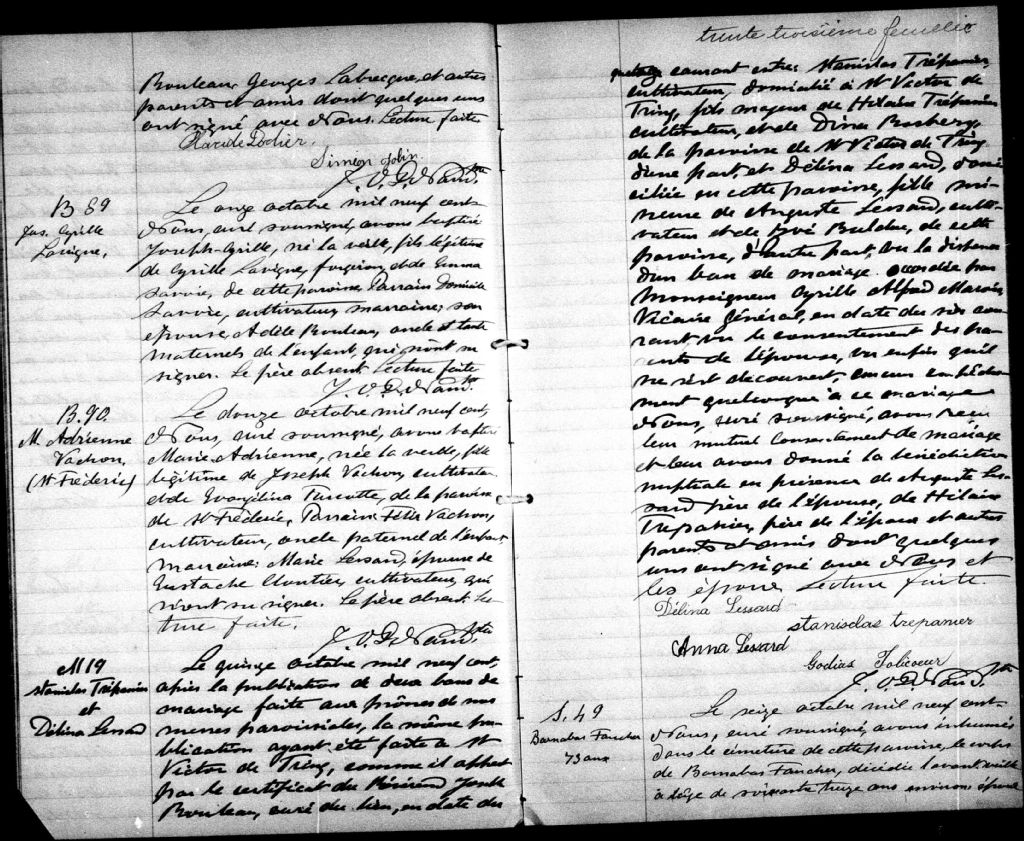 Bouleau, Georges Labrecque, et autres
parents et amis dont quelques uns
ont signé avec Nous. Lecture faite
Claride Dodier,
Siméon
J. O. D. Naud, Ptre
B 89
Jos. Cyrille
Lavigne,
Le onze octobre mil neuf cent
Nous, curé soussigné, avons baptisé
Joseph-Cyrille, né la veille, fils légitime
de Cyrille Lavigne, forgeron, et de Emma
Savoie, de cette paroisse. Parrain: Dominique
Savoie, cultivateur; marraine: son
épouse, Adèle Bouleau, oncle et tante
maternels de l'enfant, qui n'ont su
signer. Le père absent. Lecture faite
J. O. D. Naud, Ptre
B. 90.
M. Adrienne
Vachon,
(St Fréderic)
Le douze octobre mil neuf cent,
Nous, curé soussigné, avons baptisé
Marie-Adrienne, née la veille, fille
légitime de Joseph Vachon, cultivateur
et de Evangélina Turcotte, de la paroisse
de St Fréderic. Parrain: Félix Vachon,
cultivateur, oncle paternel de l'enfant
marraine: Marie Lessard, épouse de
Eustache Cloutier, cultivateur, qui
n'ont su signer. Le père absent. Lec
ture faite.
J. O. D. Naud, Ptre
M 19
Stanislas Trépanier
et
Délina Lessard
Le quinze octobre mil neuf cent,
après la publication de deux bans de
mariage faite aux prônes de nos
messes paroissiales, la même pu-
blication ayant été faite à St
Victor de Tring, comme il appert
par le certificat du Révérend Joseph
Bouleau, curé du lieu, en date du
trente troisième feuillet
quatorze courant entre: Stanislas Trépanier,
cultivateur, domicilié à St Victor de
Tring, fils majeur de Hilaire Trépanier
cultivateur, et de Dina
de la paroisse de St Victor de Tring
d'une part, et Délina Lessard, domi-
ciliée en cette paroisse, fille mi-
neure de Auguste Lessard, culti-
vateur et de Zoé Bulduc, de cette
paroisse, d'autre part, vu la dispense
d'un ban de mariage accordée par
Monseigneur Cyrille Alfred Marois
Vicaire Général, en date du six cou-
rant vu le consentement des pa-
rents de l'épouse, vu enfin qu'il
ne s'est découvert, aucun empêche-
ment quelconque à ce mariage
Nous, curé soussigné, avons reçu
leur mutuel consentement de mariage
et leur avons donné la bénédiction
nuptiale en présence de Auguste Les-
sard père de l'épouse, de Hilaire
Trépanier, père de l'époux et autres
parents et amis dont quelques
uns ont signé avec Nous et
les époux. Lecture faite.
Délina Lessard
stanisclas trepanier
Anna Lessard
Godias Jolicoeur
J. O. D. Naud, Ptre
S. 49
Barnabas Faucher
73 ans
Le seize octobre mil neuf cent-
Nous, curé soussigné, avons inhumé
dans le cimetière de cette paroisse, le corps
de Barnabas Faucher, décédé l'avant veille
à l'âge de soixante treize ans environs époux